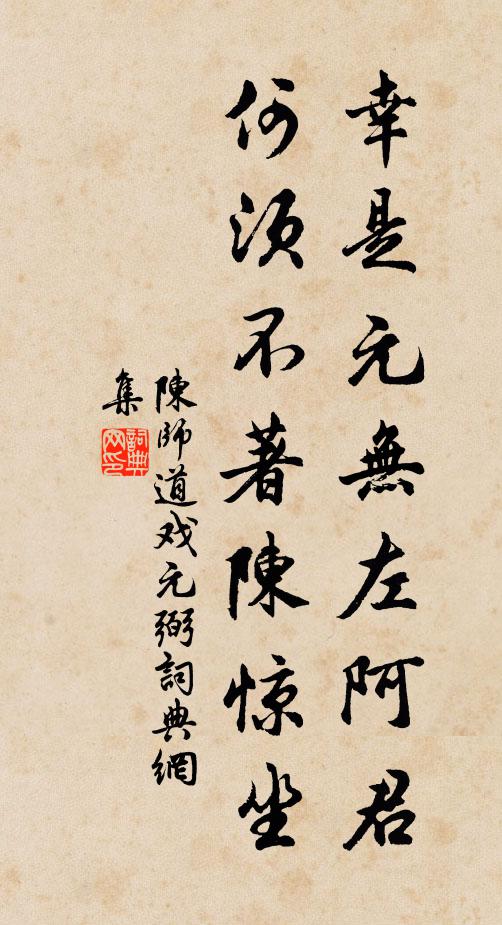 幸是元無左阿君
何須不著陳惊坐
陳師道戏元弼詞典網
集
詞典
网印